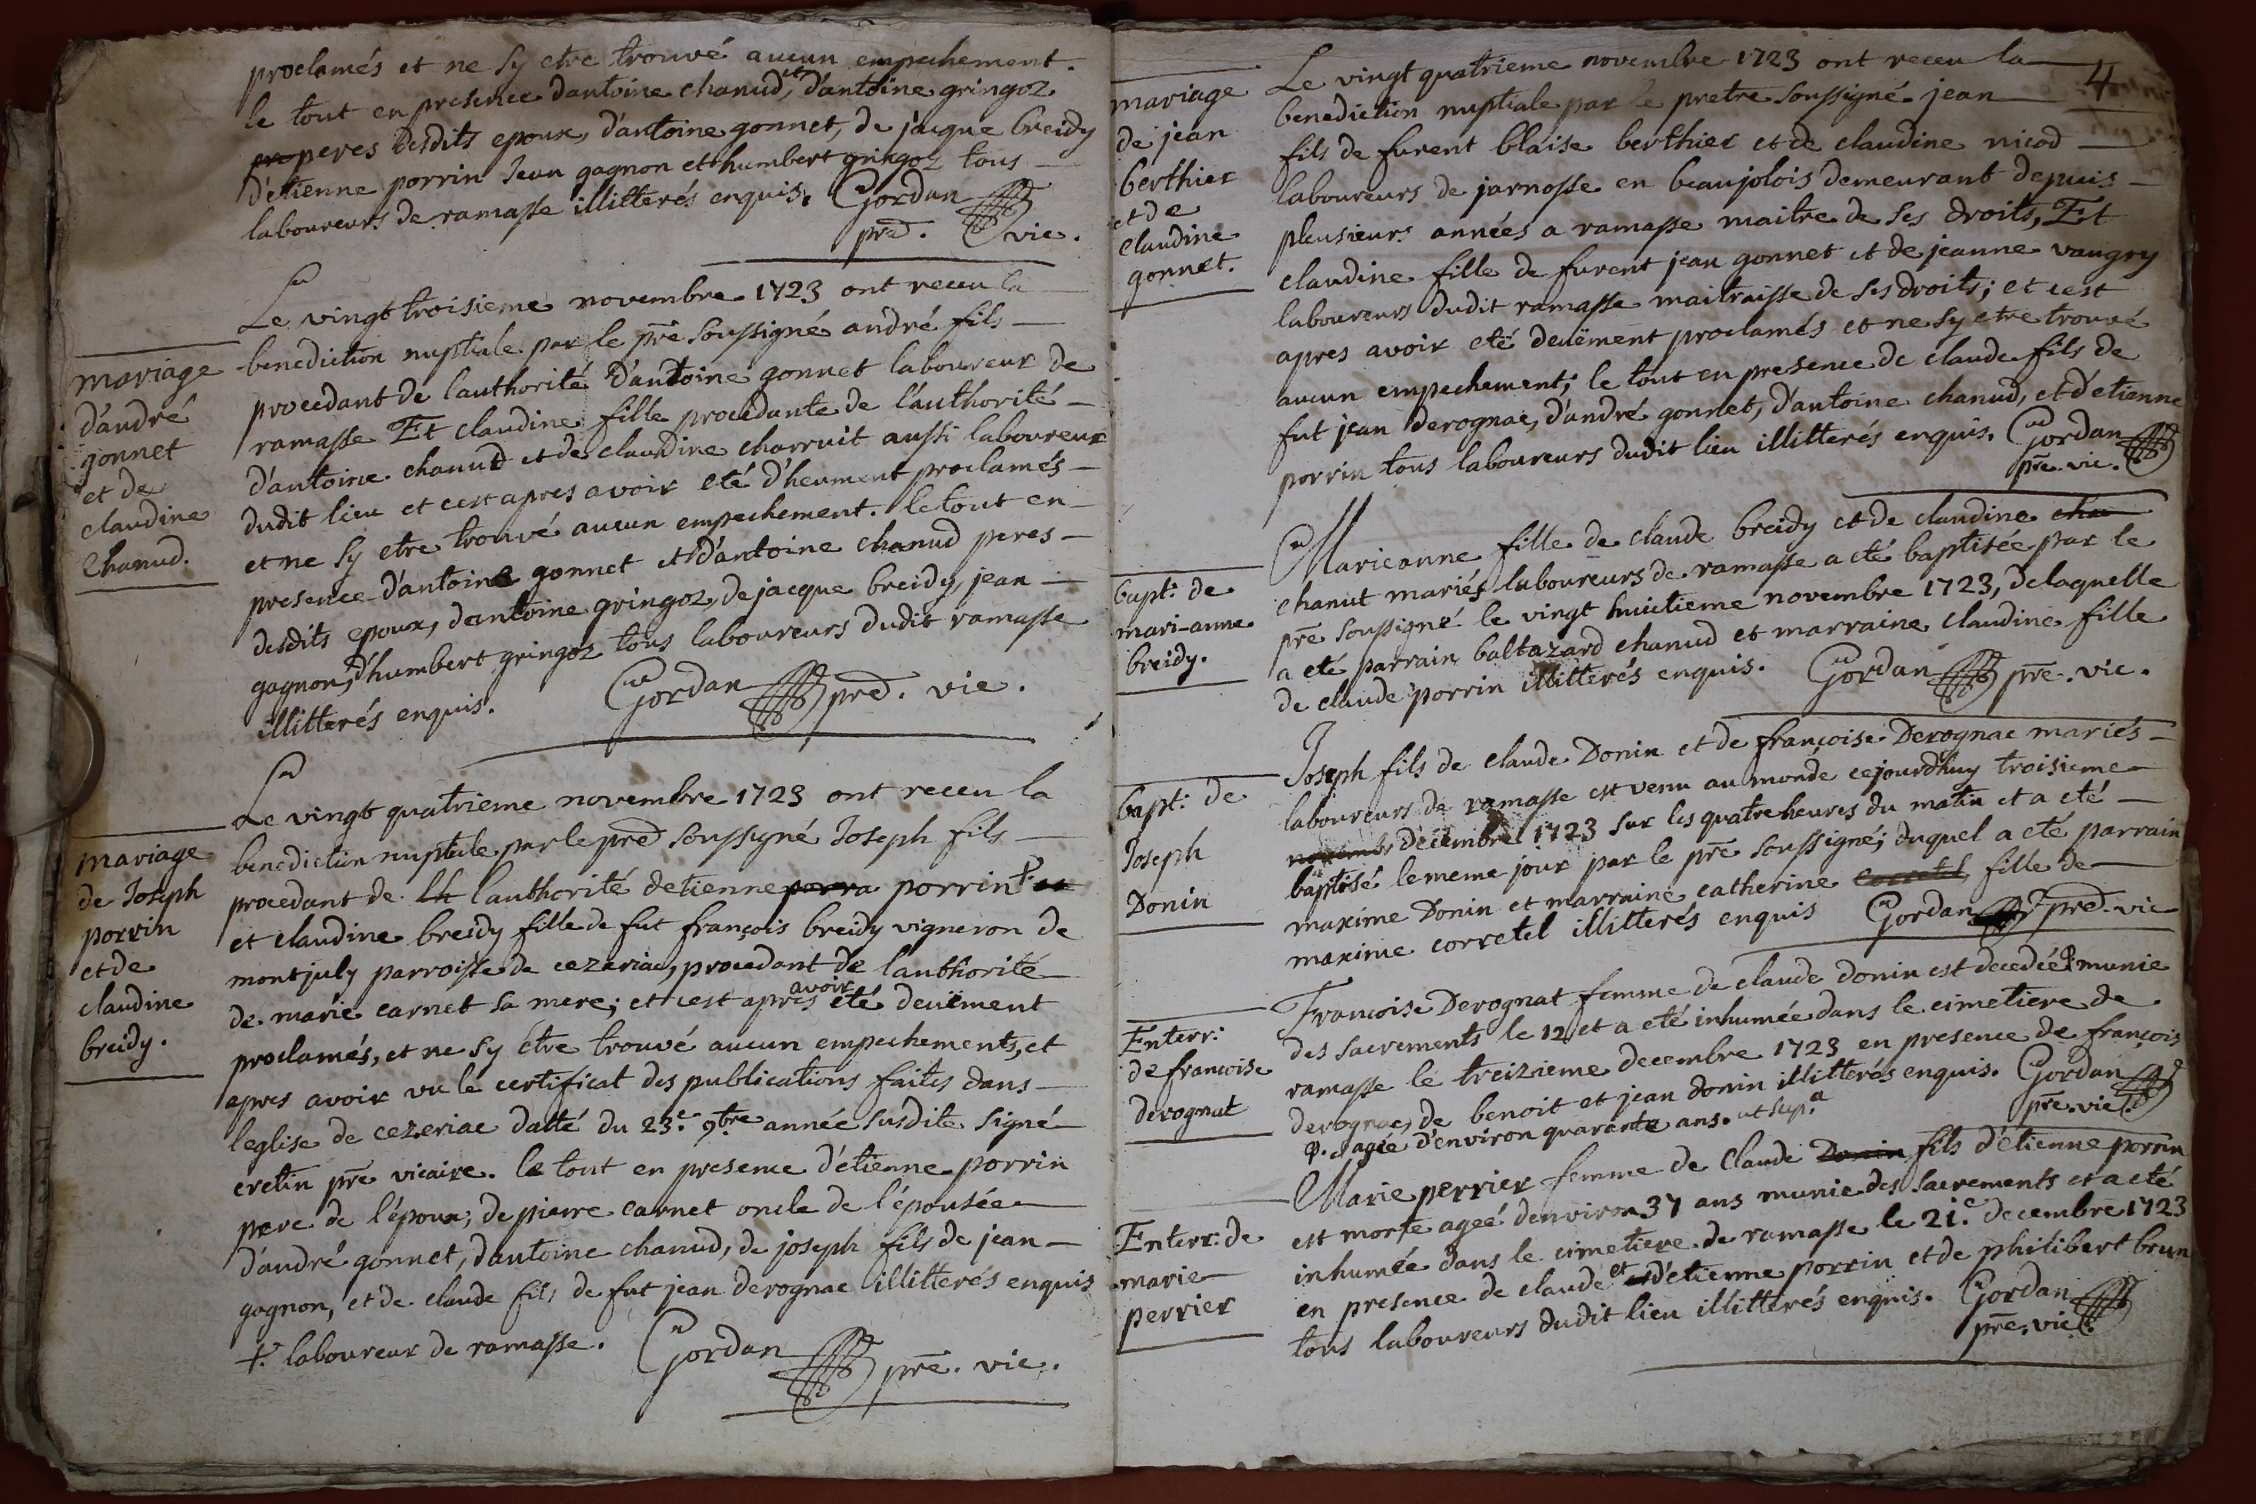 proclamés et ne sy etre trouvé aucun empechement.
le tout en presence dantoine chanud, et d'antoine gringoz
peres desdits epoux, d'antoine gonnet, de jacque breidy
d'etienne porrin Jean gagnon et humbert gringoz tous
laboureurs de ramasse illitterés enquis. Gordan
pre. vic.
mariage
d'andré
gonnet
et de
claudine
Chanud.
Le vingt troisieme novembre 1723 ont receu la
benediction nuptiale par le pre soussigné andré fils
procedant de l'authorité d'antoine gonnet laboureur de
ramasse Et claudine fille procedante de l'authorité
d'antoine chanud et de claudine charruit aussi laboureur
dudit lieu et c'est apres avoir eté d'heument proclamés
et ne sy etre trouvé aucun empechement. le tout en
presence d'antoine gonnet et d'antoine chanud peres
desdits epoux, dantoine gringoz, de jacque breidy, jean
gagnon, d'humbert gringoz tous laboureurs dudit ramasse
illitterés enquis. Gordan pre. vic.
mariage
de Joseph
porrin
et de
claudine
breidy.
Le vingt quatrieme novembre 1723 ont receu la
benediction nuptiale par le pre soussigné Joseph fils
procedant de lh l'authorité detienne porra porrin +
et claudine breidy fille de fut françois breidy vigneron de
montjuly parroisse de cezeriac, procedant de l'authorité
de marie carnet sa mere; et c'est apres avoir eté deuëment
proclamés, et ne sy etre trouvé aucun empechements, et
apres avoir vu le certificat des publications faites dans
leglise de cezeriac datté du 23.e 9bre année susdite signé
cretin pre vicaire. le tout en presence d'étienne porrin
pere de l'époux; de pierre carnet oncle de l'épousée
d'andré gonnet, dantoine chanud, de joseph fils de jean
gagnon, et de claude fils de fut jean derognac illitterés enquis
+. laboureur de ramasse. Gordan pre. vic.
4
mariage
de jean
berthier
et de
claudine
gonnet.
Le vingt quatrieme novembre 1723 ont receu la
benediction nuptiale par le pretre soussigné jean
fils de furent blaise berthier et de claudine nicod
laboureurs de jarnosse en beaujolois demeurant depuis
plusieurs années a ramasse maitre de ses droits, Et
claudine fille de furent jean gonnet et de jeanne vaugry
laboureurs dudit ramasse maitraisse de ses droits; et c'est
apres avoir eté deuëment proclamés et ne sy etre trouvé
aucun empechement; le tout en presence de claude fils de
fut jean derognac, d'andré gonnet, d'antoine chanud, et d'etienne
porrin tous laboureurs dudit lieu illitterés enquis. Gordan
pre. vic.
bapt: de
mari-anne
breidy.
Marieanne fille de claude breidy et de claudine cha
chanut mariés laboureurs de ramasse a eté baptisée par le
pre soussigné le vingt huictieme novembre 1723, de laquelle
a eté parrain baltazard chanud et marraine claudine fille
de claude porrin illitterés enquis. Gordan pre. vic.
bapt: de
Joseph
Donin
Joseph fils de claude Donin et de françoise Derognac mariés
laboureurs de ramasse est venu au monde cejourd'huy troisieme
novembr decembre 1723 sur les quatre heures du matin et a eté
baptisé le meme jour par le pre soussigné; duquel a eté parrain
maxime Donin et marraine catherine corretel fille de
maxime corretel illitterés enquis Gordan pre. vic
Enterr:
de francoise
derognat
Francoise Derognat femme de claude donin est decedée munie
des sacrements le 12 et a eté inhumée dans le cimetiere de
ramasse le treizieme decembre 1723 en presence de françois
derognac, de benoit et jean donin illitterés enquis. Gordan
pre. vic.
agée d'environ quarante ans. ut sup.a
Enterr: de
marie
perrier
Marie perrier femme de Claude Donin fils d'etienne porrin
est morte ageé denviron 37 ans munie des sacrements et a eté
inhumée dans le cimetiere de ramasse le 21.e decembre 1723
en presence de claude et d'etienne porrin et de philibert brun
tous laboureurs dudit lieu illitterés enquis. Gordan
pre. vic.